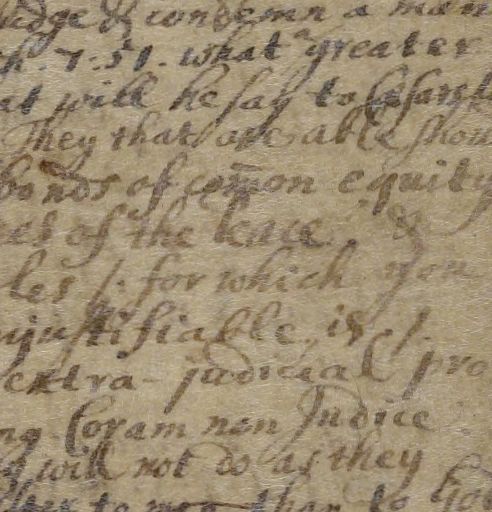 judge & condemn a man
7:51. what greater
at will he say to
They that are able shou
bonds of com̄on equity
ces of the Peace. &
les /. for which you
njustifiable, is /.
extra-judicial pro
ng Coram non Judice
will not do as they
to men than to God